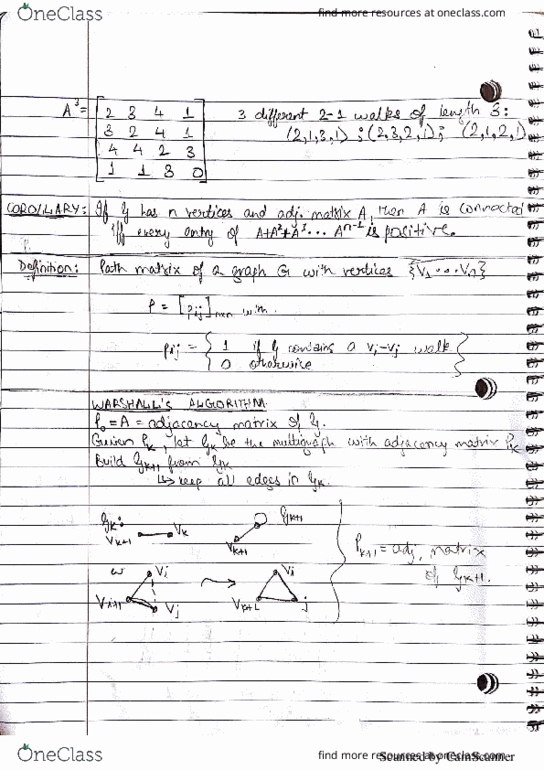 OneClass
find more resources at oneclass.com
A³ = [2 3 4 1
3 2 4 1
4 4 2 3
1 1 3 0]
3 different 2-1 walks of length 3:
(2,1,3,1) ; (2,3,2,1) ; (2,1,2,1)
COROLLARY: If G has n vertices and adj. matrix A, then A is connected
iff every entry of A+A²+A³... Aⁿ⁻¹ is positive.
Definition: Path matrix of a graph G with vertices {V₁...Vₙ}
P = [pij]nxn with
pij = { 1 if G contains a vi-vj walk
0 otherwise }
WARSHALL'S ALGORITHM
P₀ = A = adjacency matrix of G.
Given Pk, let Gk be the multigraph with adjacency matrix Pk
Build Gk+1 from Gk
↳ keep all edges in Gk.
Gk: Gk+1
Vk+1 Vk Vk+1
Pk+1 = adj. matrix
of Gk+1.
Vi Vi
Vj Vk+1 j
OneClass
find more resources at oneclass.com
Scanned by CamScanner